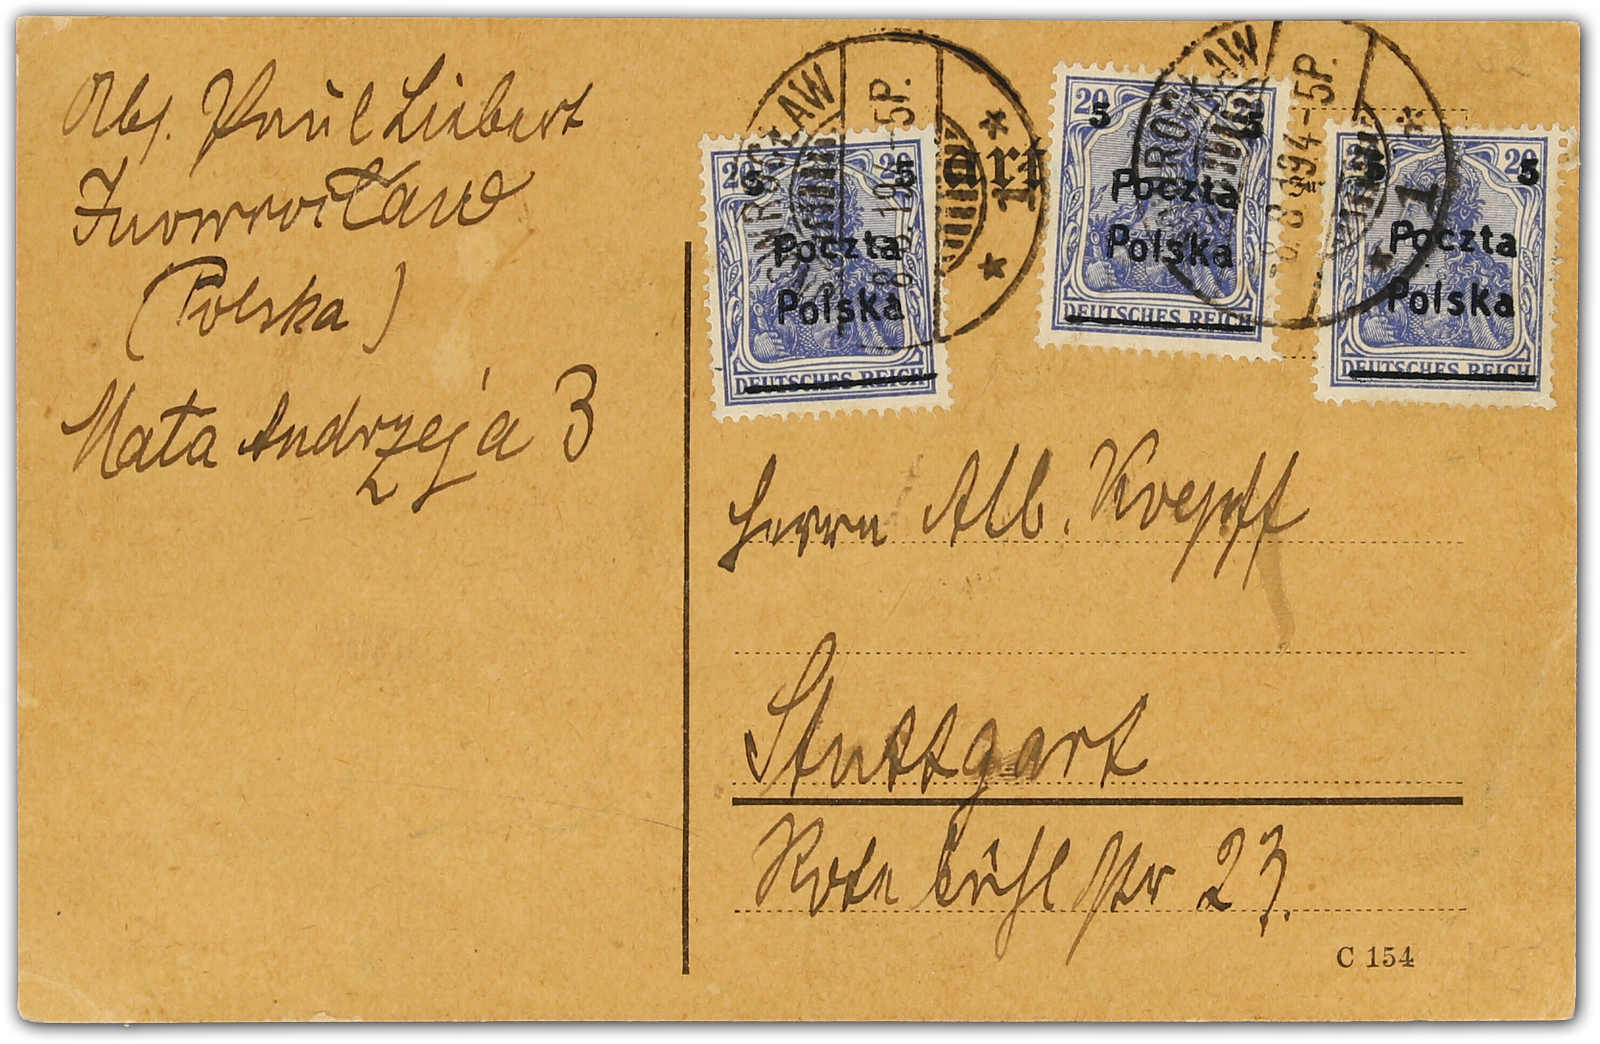 Abs. Paul Liebert
Inowrocław
(Polska)
Mała Andrzeja 3
INOWROCŁAW
-5P.
* *
1
20 5 20 5
Poczta
Polska
DEUTSCHES REICH
20 5 20 5
Poczta
Polska
DEUTSCHES REICH
20 5 20 5
Poczta
Polska
DEUTSCHES REICH
INOWROCŁAW
8.8.19 4-5P.
* *
1
Herrn Alb.
Stuttgart
Rotebühlstr 23.
C 154